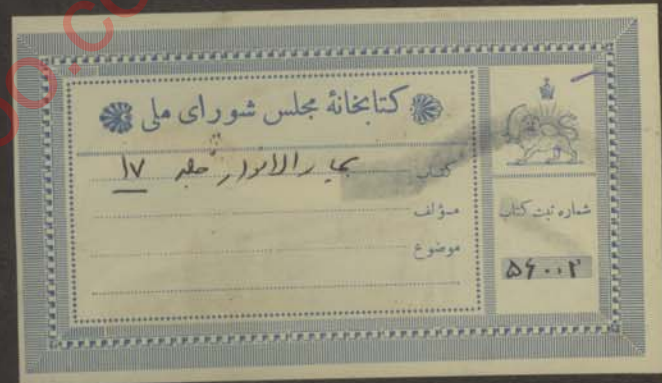 کتابخانه مجلس شورای ملی
کتاب بحار الانوار جلد ١٧
مؤلف
موضوع
شماره ثبت کتاب
٥٦٠٠٢